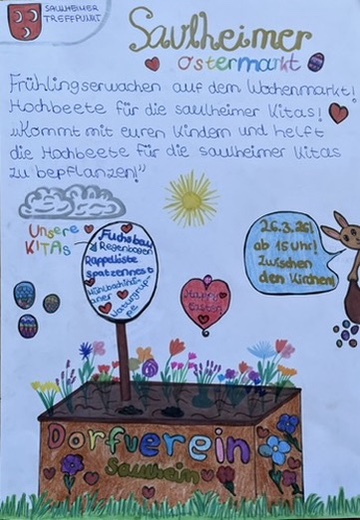 SAULHEIMER
TREFFPUNKT
Saulheimer
Ostermarkt
Frühlingserwachen auf dem Wochenmarkt!
Hochbeete für die saulheimer Kitas!
„Kommt mit euren Kindern und helft
die Hochbeete für die saulheimer Kitas
zu bepflanzen!"
Unsere
KITAs
Fuchsbau
Regenbogen
Rappelkiste
Spatzennest
26.3.26!
ab 15 Uhr!
Zwischen
den Kirchen!
Happy
Easter
Dorfverein
Saulheim